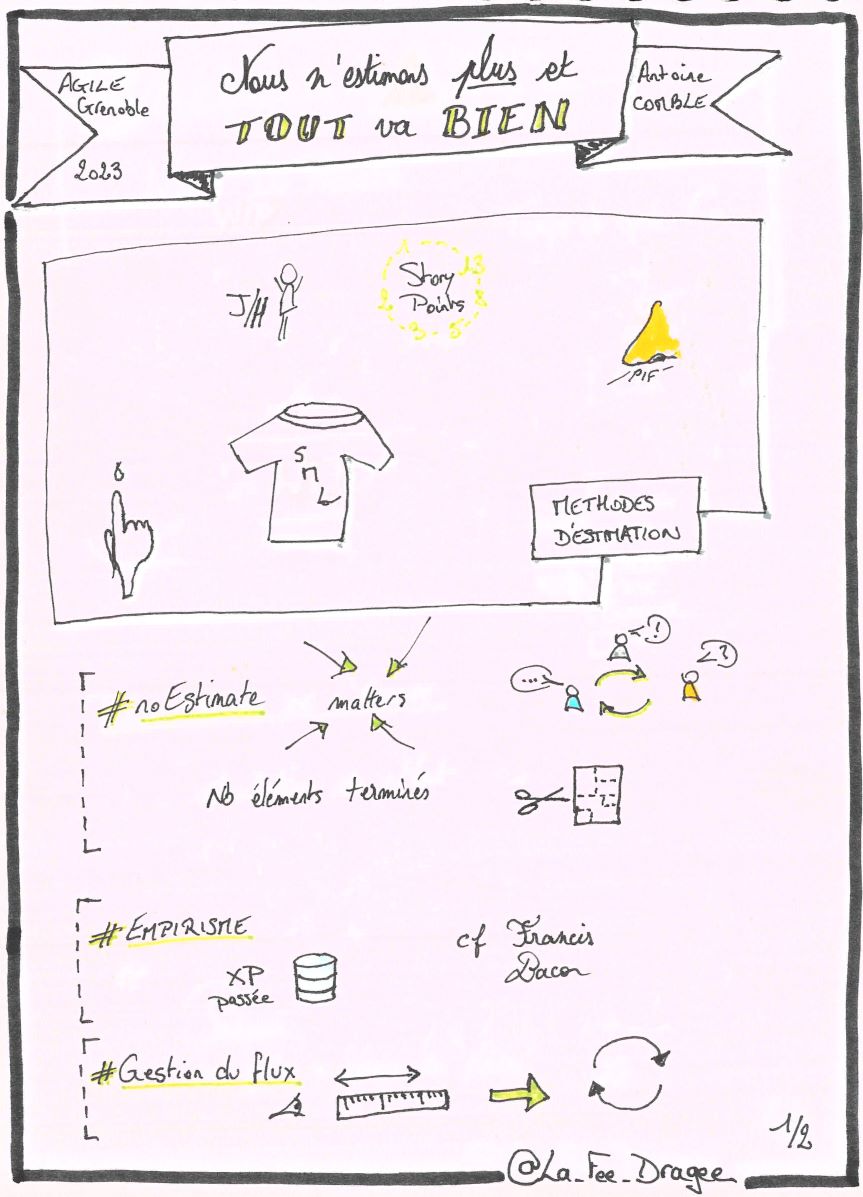 AGILE
Grenoble
2023
Nous n'estimons plus et
TOUT va BIEN
Antoine
COMBLE
J/H
Story
Points
1
2
3 - 5
8
13
PIF
S
M
L
METHODES
D'ESTIMATION
#noEstimate
matters
...
!
?
Nb éléments terminés
#EMPIRISME
XP
passée
cf Francis
Bacon
#Gestion du flux
1/2
@La_Fee_Dragee